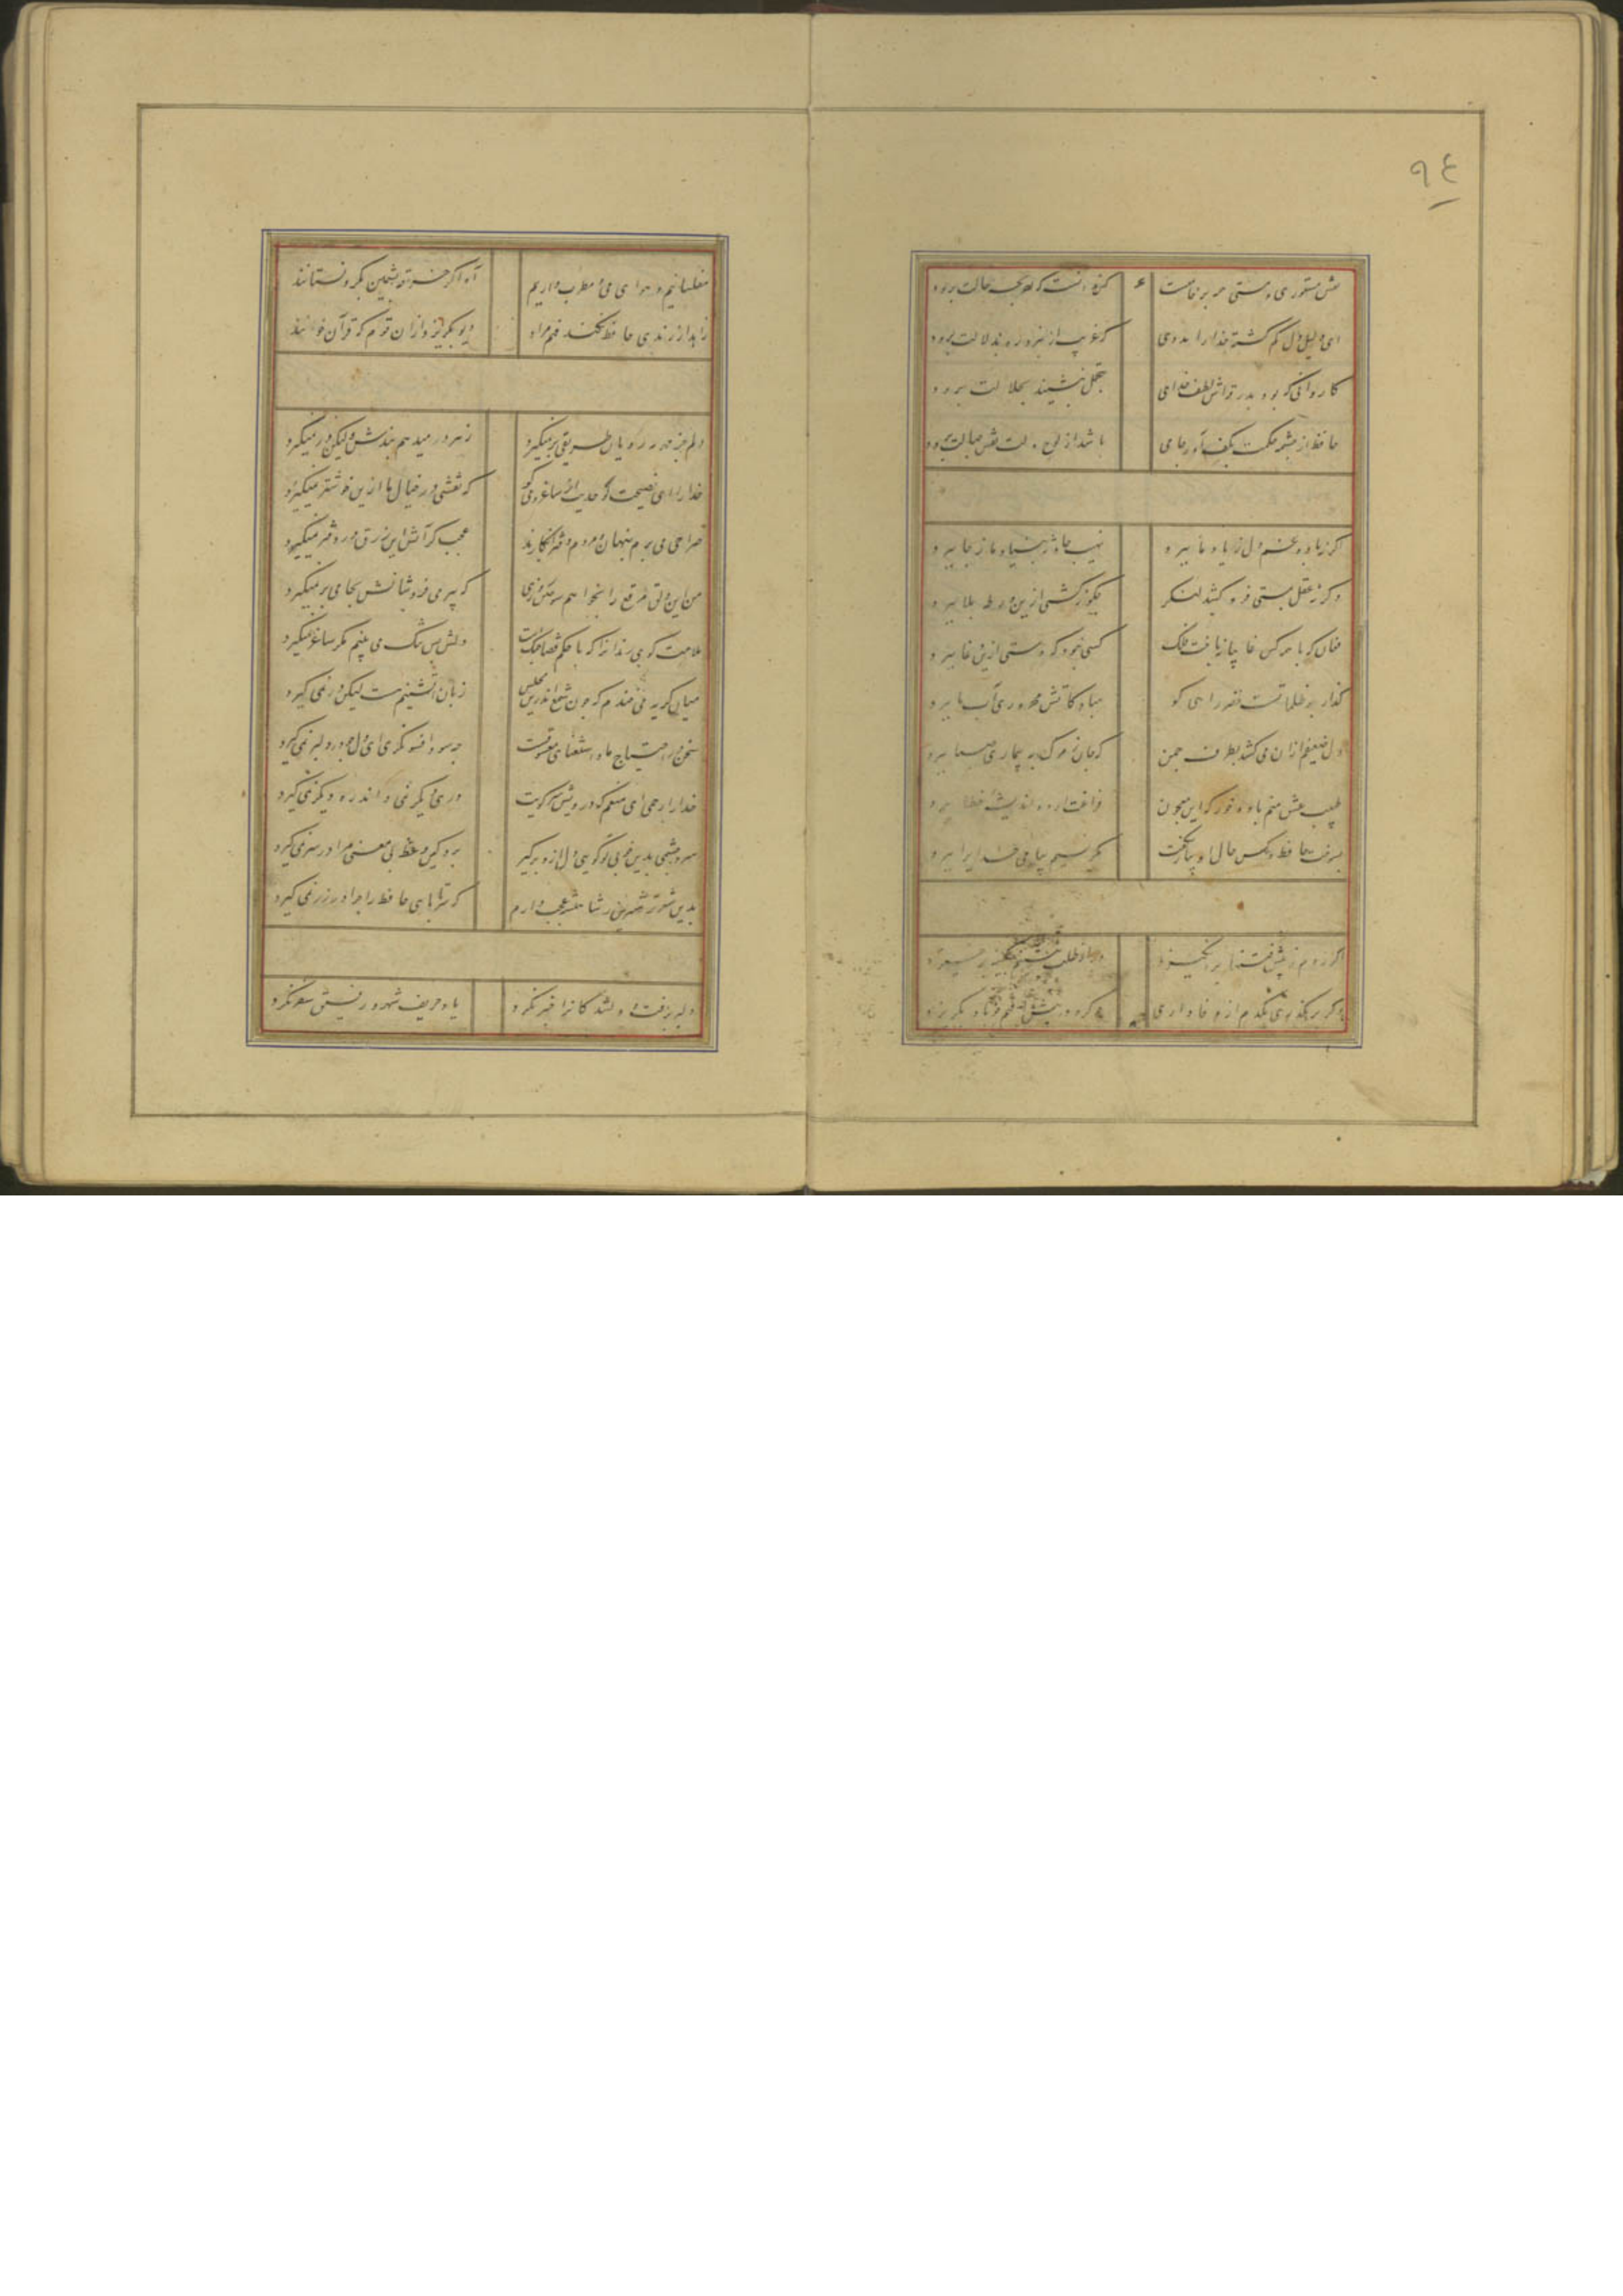 ۹۴
حکم مستوری و مستی همه بر خاتمت است کس ندانست که آخر بچه حالت برود
ای دلیل دل گم گشته خدا را مددی که غریب ار نبرد ره بدلالت برود
کاروانی که بود بدرقه اش لطف خدای بتجمل بنشیند بجلالت برود
حافظ از چشمه حکمت بکف آور جامی باشد از لوح دلت نقش جهالت برود
اگر نه باده غم دل ز یاد ما ببرد نهیب حادثه بنیاد ما ز جا ببرد
وگر نه عقل بمستی فرو کشد لنگر چگونه کشتی ازین ورطه بلا ببرد
فغان که با همه کس غایبانه باخت فلک کسی نبود که دستی ازین دغا ببرد
گذار بر ظلماتست خضر راهی کو مباد کاتش محرومی آب ما ببرد
دل ضعیفم از آن می کشد بطرف چمن که جان ز مرگ به بیماری صبا ببرد
طبیب عشق منم باده خور که این معجون فراغت آرد و اندیشه خطا ببرد
بسوخت حافظ و کس حال او بیار نگفت مگر نسیم پیامی خدایرا ببرد
اگر روم ز پیش فتنها بر انگیزد ور از طلب بنشینم بکینه بر خیزد
وگر برهگذری یکدم از وفاداری چو گرد در پیش افتم چو باد بگریزد
مفلسانیم و هوای می و مطرب داریم آه اگر خرقه پشمین بگرو نستانند
زاهد ار رندی حافظ نکند فهم مراد دیو بگریزد از آن قوم که قرآن خوانند
دلم جز مهر مه رویان طریقی بر نمیگیرد ز هر در میدهم پندش ولیکن در نمیگیرد
خدا را ای نصیحت گو حدیث از ساغر و می گو که نقشی در خیال ما ازین خوشتر نمیگیرد
صراحی می برم پنهان و مردم دفتر انگارند عجب گر آتش این زرق در دفتر نمیگیرد
من این دلق مرقع را بخواهم سوختن روزی که پیر می فروشانش بجامی بر نمیگیرد
ملامت گوی رندانرا که با حکم قضا جنگست دلش بس تنگ می بینم مگر ساغر نمیگیرد
میان گریه می خندم که چون شمع اندرین مجلس زبان آتشینم هست لیکن در نمی گیرد
سخن در احتیاج ما و استغنای معشوقست چه سود افسونگری ای دل چو در دلبر نمی گیرد
خدا را رحمی ای منعم که درویش سر کویت دری دیگر نمی داند ره دیگر نمی گیرد
سر و چشمی بدین خوبی تو گویی دل ازو برگیر برو کین وعظ بی معنی مرا در سر نمی گیرد
بدین شعر تر شیرین ز شاهنشه عجب دارم که سر تا پای حافظ را چرا در زر نمی گیرد
دلبر برفت و دلشدگانرا خبر نکرد یاد حریف شهر و رفیق سفر نکرد